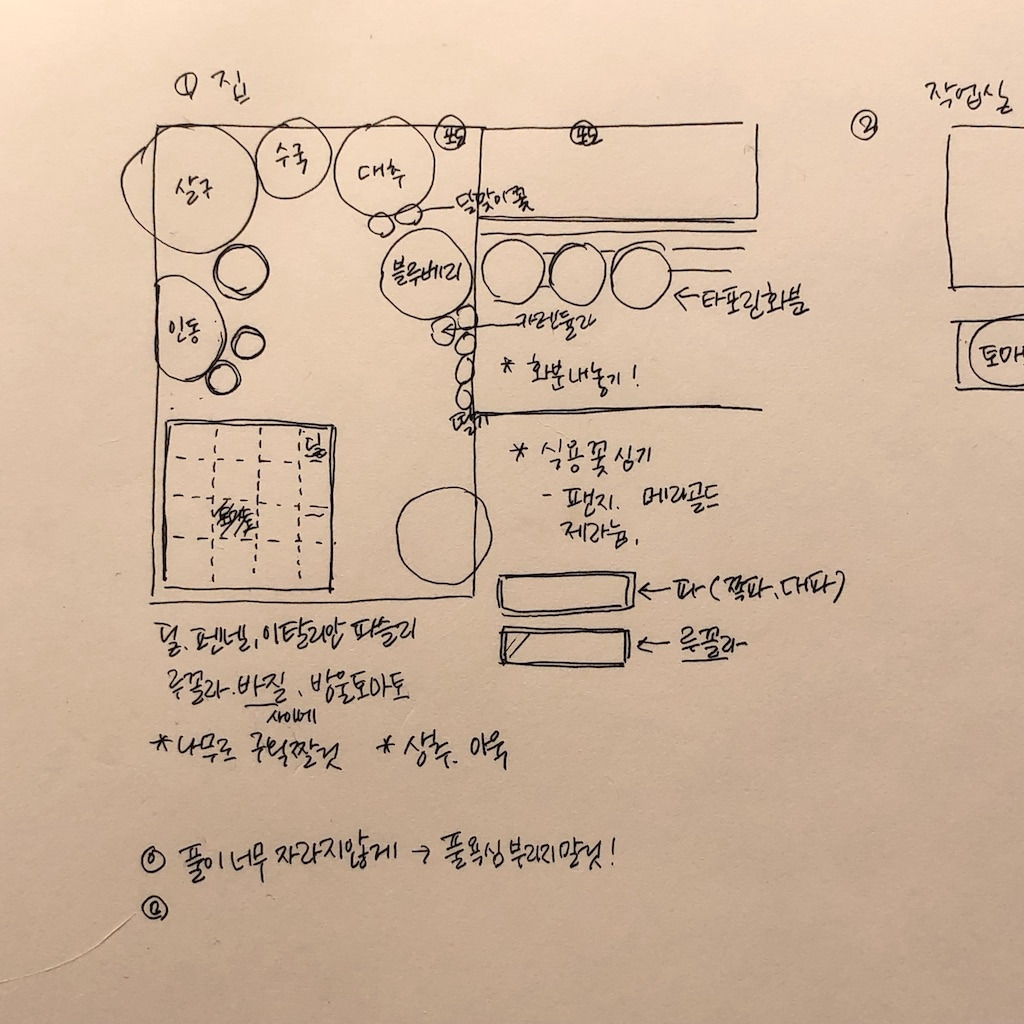 ① 집
② 작업실
살구
수국
대추
포도
포도
달맞이꽃
블루베리
인동
← 타포린화분
* 화분내놓기!
딸기
딜
* 식용꽃심기
- 팬지. 메리골드
제라늄,
← 파 (쪽파, 대파)
← 루꼴라
토마
딜, 펜넬, 이탈리안 파슬리
루꼴라. 바질, 방울토마토
사이에
* 나무로 구획짤것 * 상추. 아욱
① 풀이 너무 자라지않게 → 풀욕심부리지말것!
②